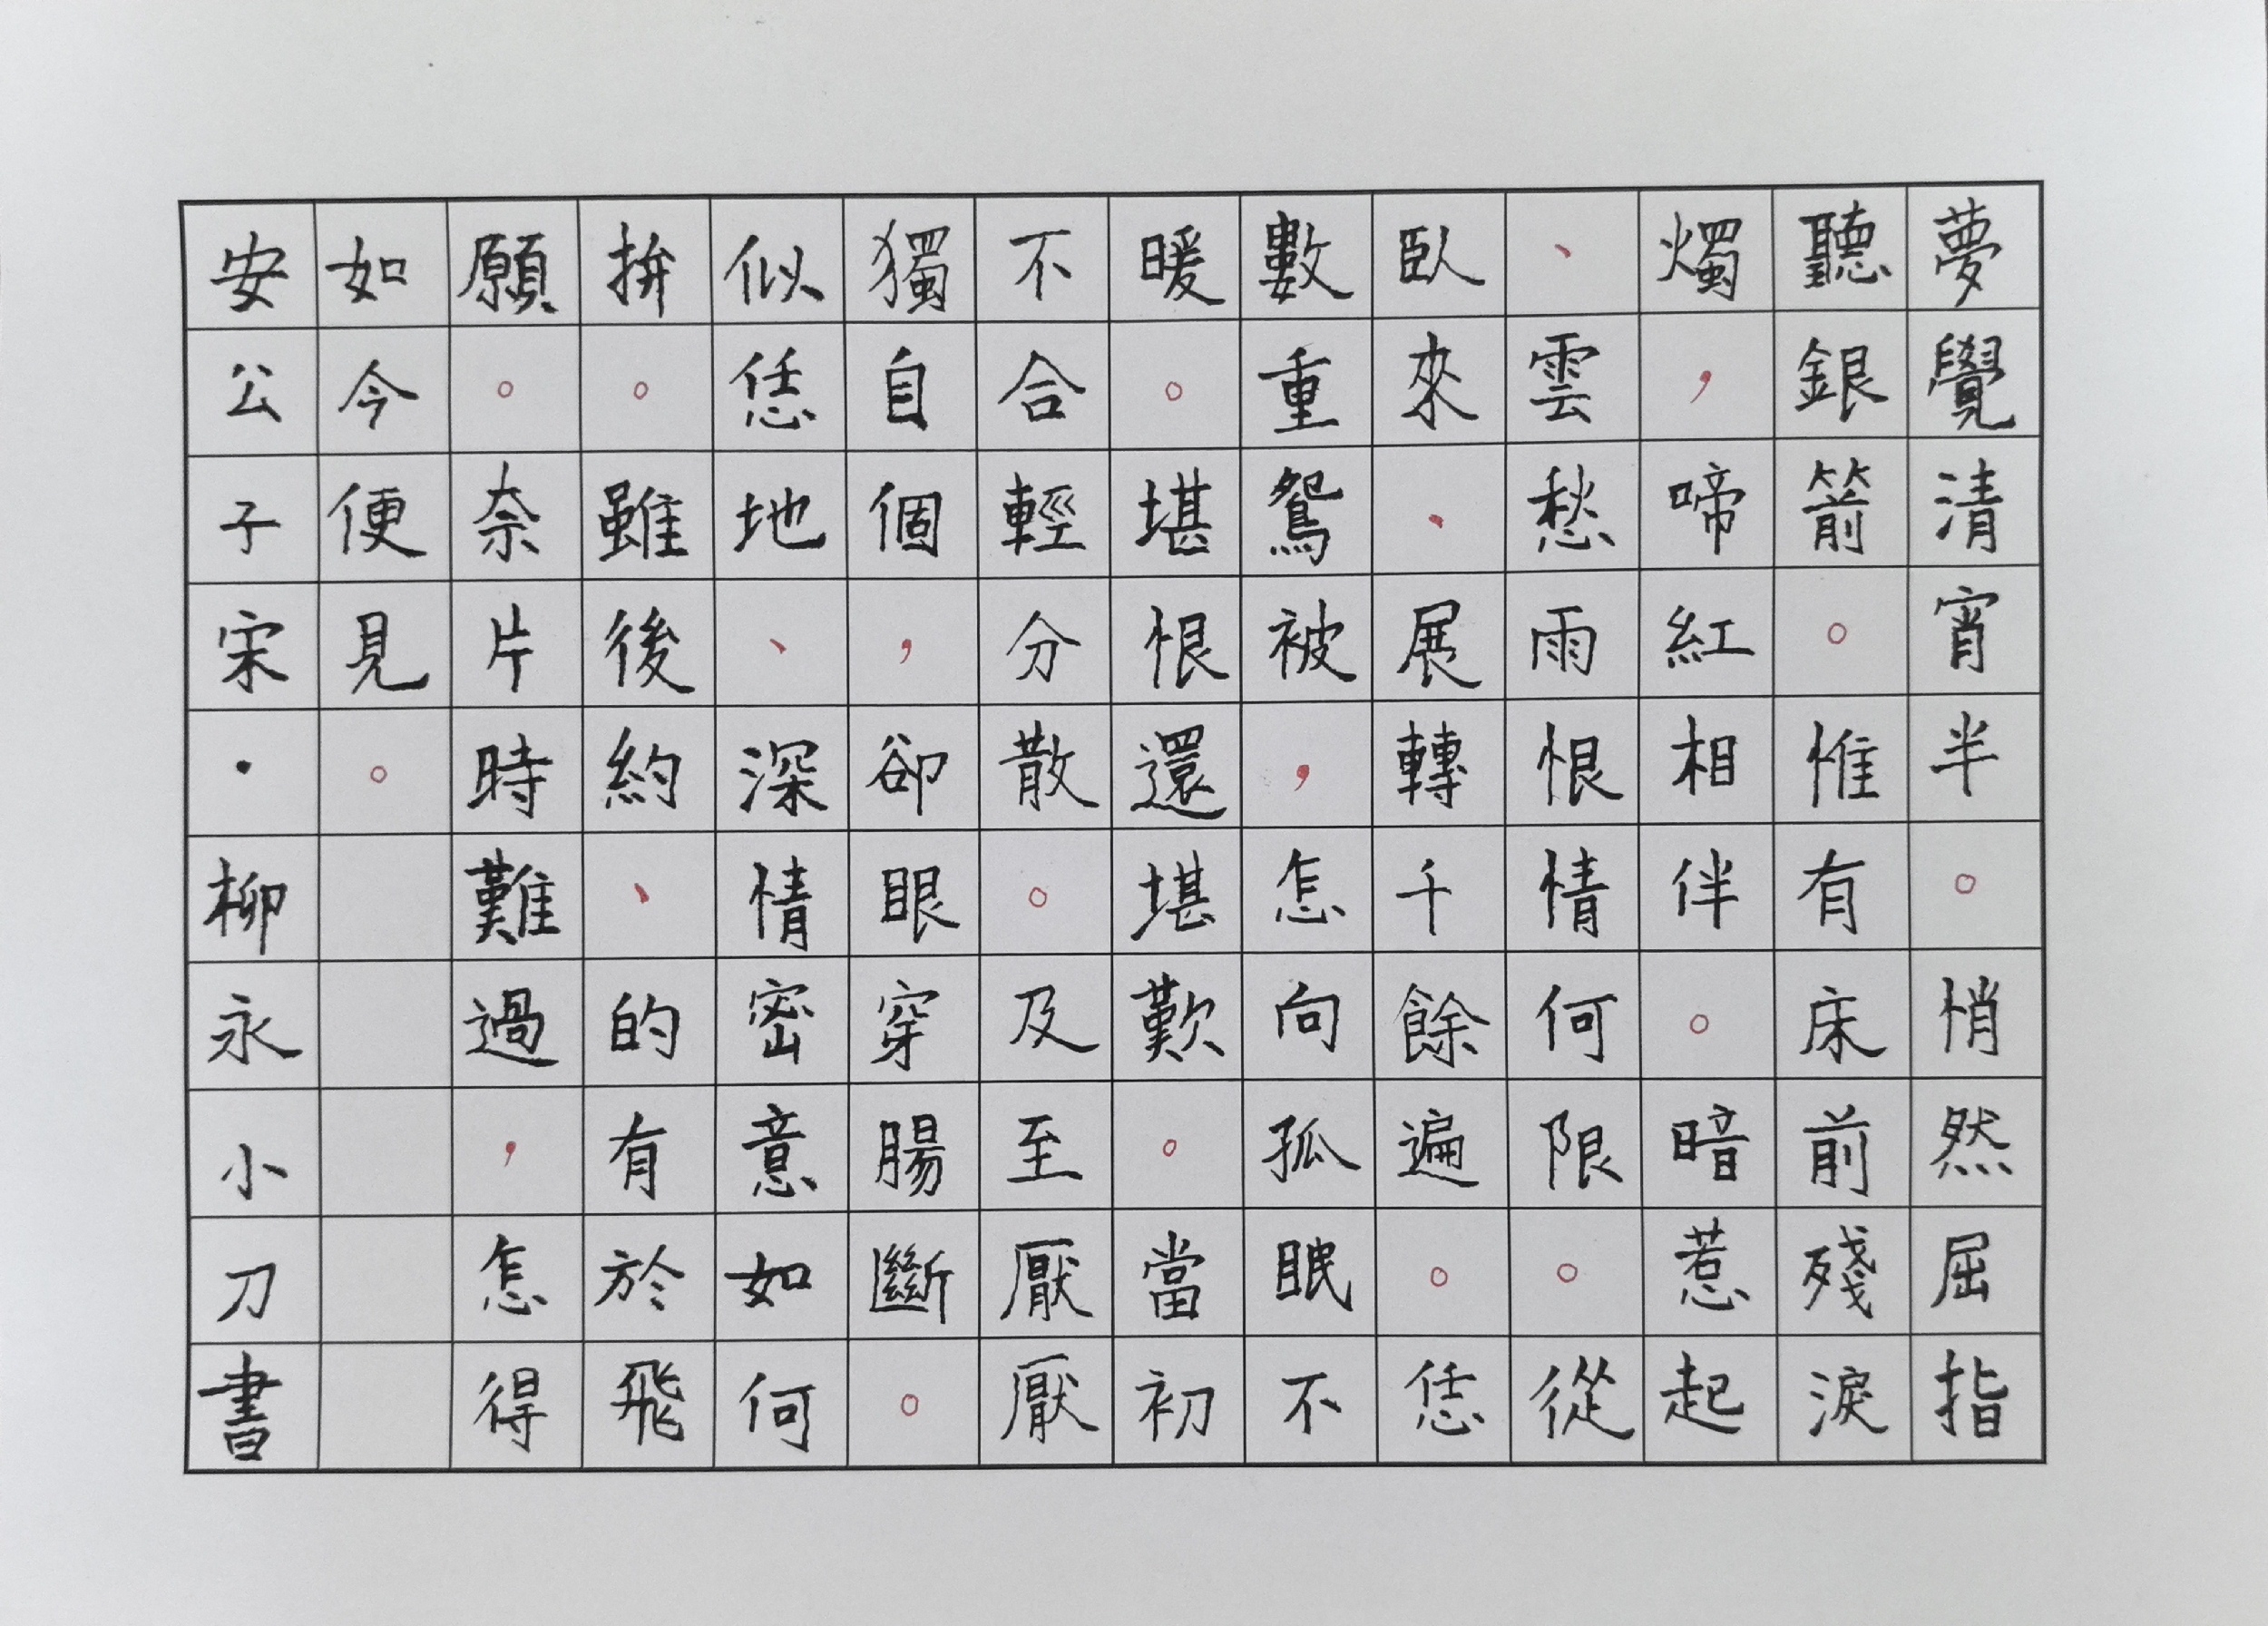 夢覺清宵半。悄然屈指
聽銀箭。惟有床前殘淚
燭，啼紅相伴。暗惹起
、雲愁雨恨情何限。從
臥來、展轉千餘遍。恁
數重鴛被，怎向孤眠不
暖。堪恨還堪歎。當初
不合輕分散。及至厭厭
獨自個，卻眼穿腸斷。
似恁地、深情密意如何
拚。雖後約、的有於飛
願。奈片時難過，怎得
如今便見。
安公子宋·柳永小刀書